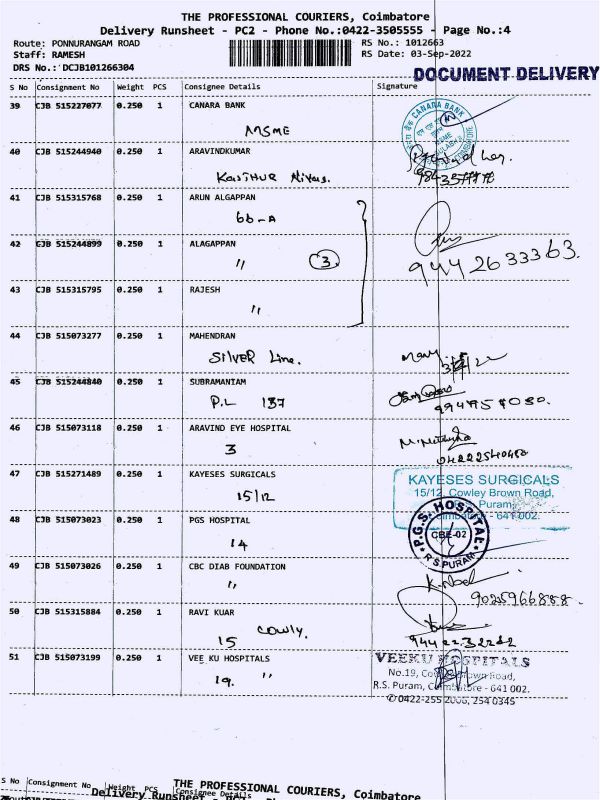 THE PROFESSIONAL COURIERS, Coimbatore
Delivery Runsheet - PC2 - Phone No.:0422-3505555 - Page No.:4
Route: PONNURANGAM ROAD RS No.: 1012663
Staff: RAMESH RS Date: 03-Sep-2022
DRS No.: DCJB101266304
DOCUMENT DELIVERY
S No Consignment No Weight PCS Consignee Details Signature
39 CJB 515227077 0.250 1 CANARA BANK
MSME
CANARA BANK
40 CJB 515244940 0.250 1 ARAVINDKUMAR
Kasthur Nivas.
41 CJB 515315768 0.250 1 ARUN ALGAPPAN
66-A
42 CJB 515244899 0.250 1 ALAGAPPAN
" 3
9442633363.
43 CJB 515315795 0.250 1 RAJESH
"
44 CJB 515073277 0.250 1 MAHENDRAN
SILVER Line.
45 CJB 515244840 0.250 1 SUBRAMANIAM
P.L 137
46 CJB 515073118 0.250 1 ARAVIND EYE HOSPITAL
3
47 CJB 515271489 0.250 1 KAYESES SURGICALS
15/12
KAYESES SURGICALS
15/12, Cowley Brown Road,
Puram,
641 002.
48 CJB 515073023 0.250 1 PGS HOSPITAL
14
P.G.S. HOSPITAL
CBE-02
R S PURAM
49 CJB 515073026 0.250 1 CBC DIAB FOUNDATION
"
9025966888.
50 CJB 515315884 0.250 1 RAVI KUAR
15 Cowly.
51 CJB 515073199 0.250 1 VEE KU HOSPITALS
19. "
VEEKU HOSPITALS
No.19, Brown Road,
R.S. Puram, Coimbatore - 641 002.
0422-255 2006, 254 0345
S No Consignment No Weight PCS Consignee Details
THE PROFESSIONAL COURIERS, Coimbatore
Delivery Runsheet